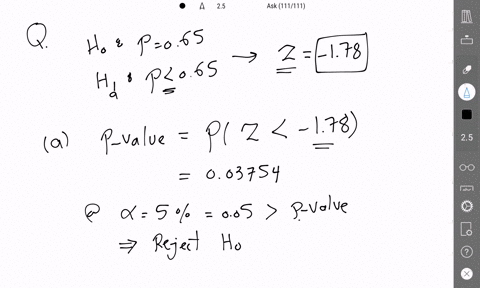 2.5 Ask (111/111)
Q.
H₀ : P=0.65 → Z = -1.78
Hₐ : P<0.65
(a) P-value = P( Z < -1.78)
= 0.03754
@ α = 5% = 0.05 > P-value
⇒ Reject H₀
2.5